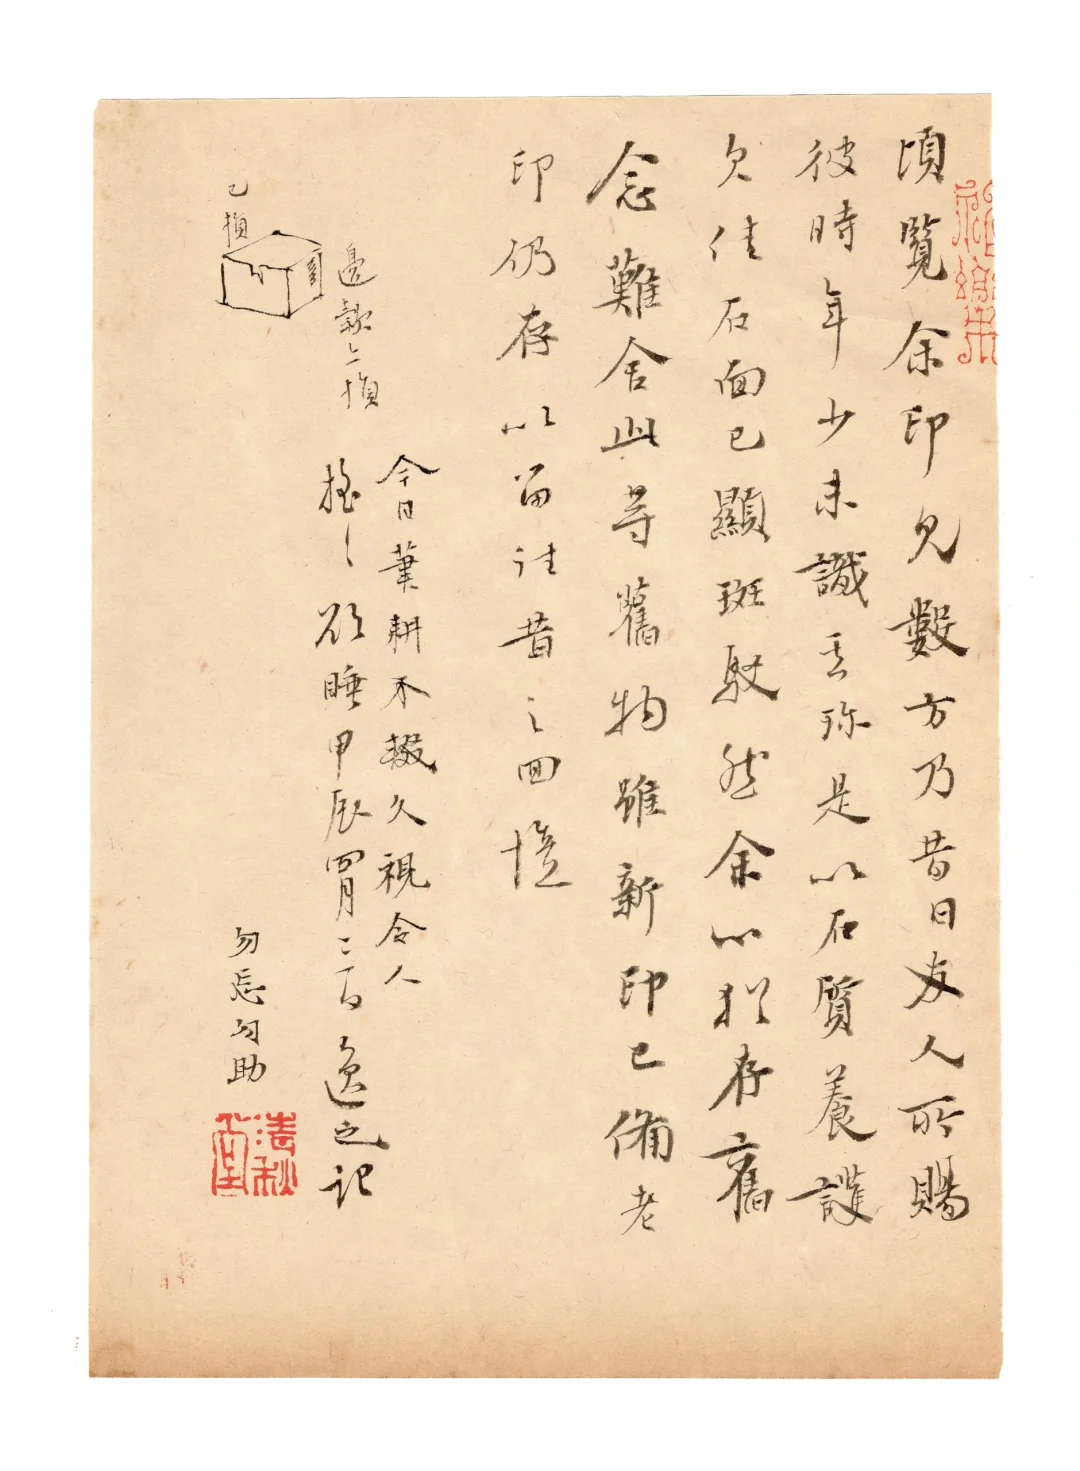 頃覽余印見數方乃昔日友人所賜
彼時年少未識其珍是以石質養護
欠佳石面已顯斑駁然余心猶存舊
念難舍此等舊物雖新印已備老
印仍存以留往昔之回憶
今日筆耕不輟久視令人
搖搖欲睡甲辰四月二日逸之記
邊款上損
已損
勿忘勿助
清秋